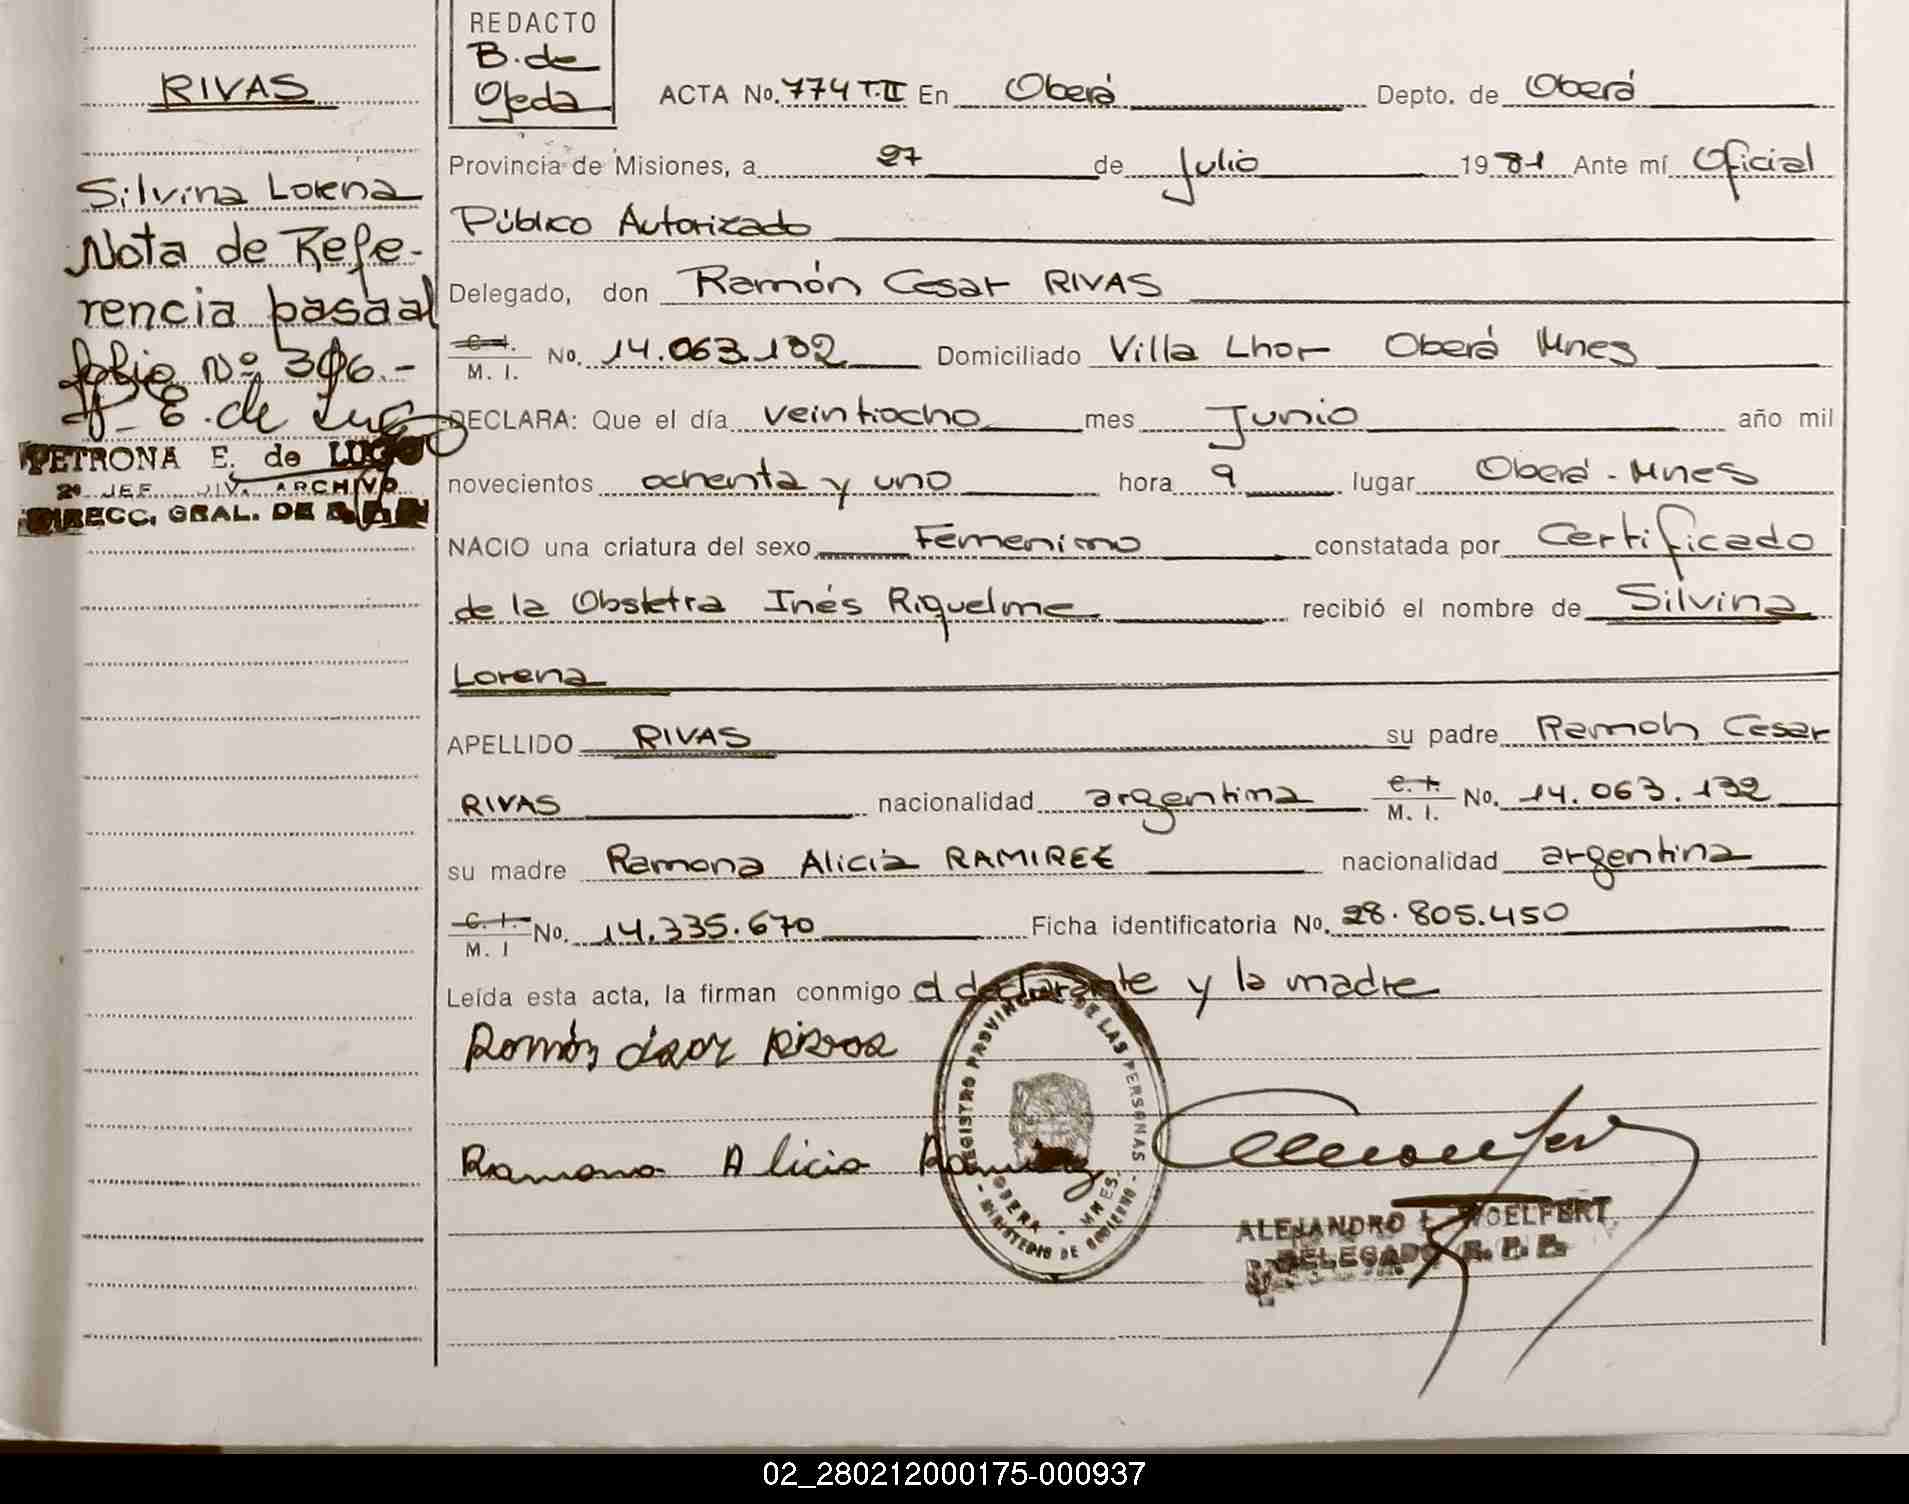 RIVAS
Silvina Lorena
Nota de Refe-
rencia pasa al
folio Nº 306.-
E. de Lugo
PETRONA E. de LUGO
2º JEF DIV. ARCHIVO
DIRECC. GRAL. DE
REDACTO
B. de
Ojeda
ACTA No. 774 T.II En Oberá Depto. de Oberá
Provincia de Misiones, a 27 de Julio 1981 Ante mí Oficial
Público Autorizado
Delegado, don Ramón Cesar RIVAS
C. I.
M. I. No. 14.063.132 Domiciliado Villa Lhor Oberá Mnes
DECLARA: Que el día veintiocho mes Junio año mil
novecientos ochenta y uno hora 9 lugar Oberá - Mnes
NACIO una criatura del sexo Femenino constatada por Certificado
de la Obstetra Inés Riquelme recibió el nombre de Silvina
Lorena
APELLIDO RIVAS su padre Ramón Cesar
RIVAS nacionalidad argentina C. I. M. I. No. 14.063.132
su madre Ramona Alicia RAMIREZ nacionalidad argentina
C. I. M. I No. 14.335.670 Ficha identificatoria No. 28.805.450
Leída esta acta, la firman conmigo el declarante y la madre
Ramón Cesar Rivas
Ramona Alicia Ramirez
REGISTRO PROVINCIAL DE LAS PERSONAS
OBERA - MNES.
- MINISTERIO DE GOBIERNO -
ALEJANDRO L. WOELFERT
DELEGADO R. P. P.
02_280212000175-000937